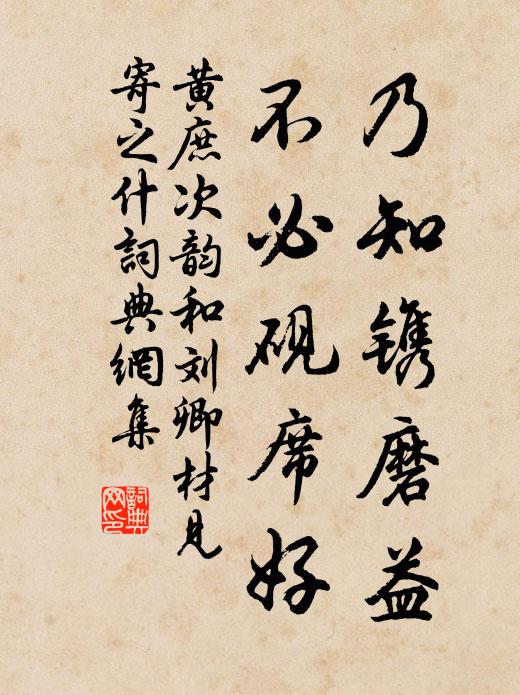 乃知镌磨益
不必砚席好
黄庶次韵和刘卿材见
寄之什詞典網集
詞典网印